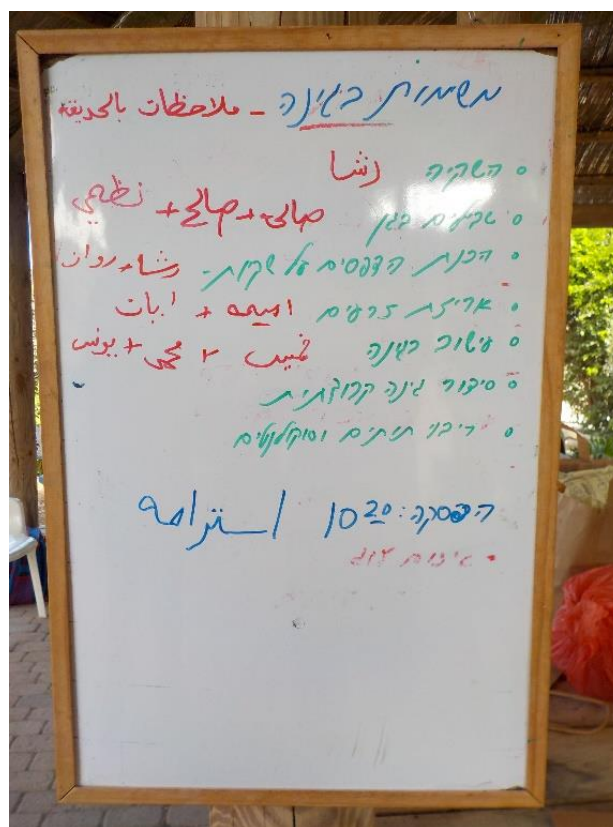 משימות בגינה - ملاحظات بالحديقة
• השקיה رشا
• שבילים בגן صالح + صالح + نظمي
• הכנת הדפסים על שקיות - رشا + روان
• אריזת זרעים اميمه + ايات
• עישוב בגינה خميس + محمي + يونس
• סיפור גינה קהילתית
• ריבוי תותים וסוקולנטים
הפסקה: 10 30 استراحه